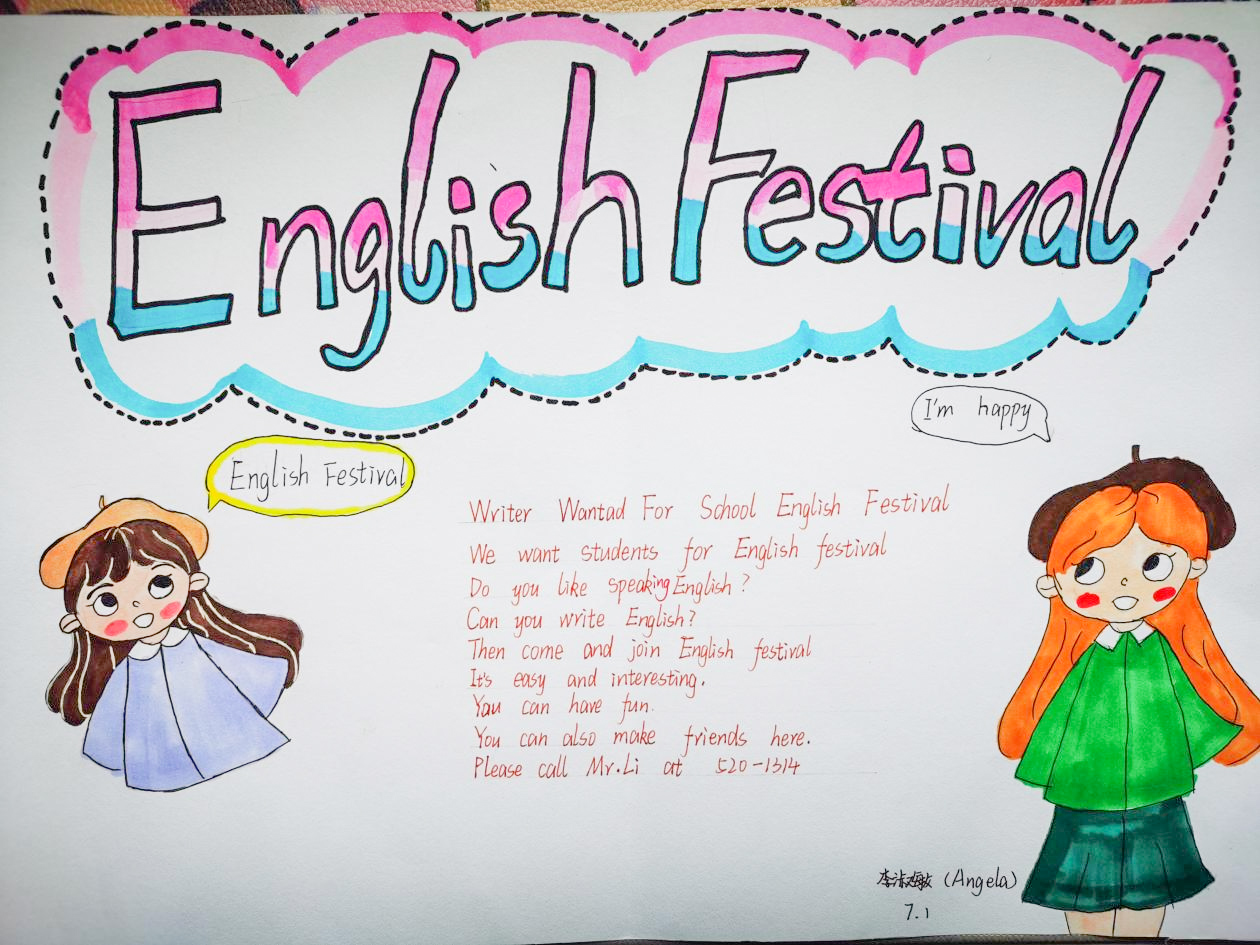 English Festival
I'm happy
English Festival
Writer Wantad For School English Festival
We want students for English festival
Do you like speaking English?
Can you write English?
Then come and join English festival
It's easy and interesting.
You can have fun.
You can also make friends here.
Please call Mr.Li at 520-1314
(Angela)
7.1